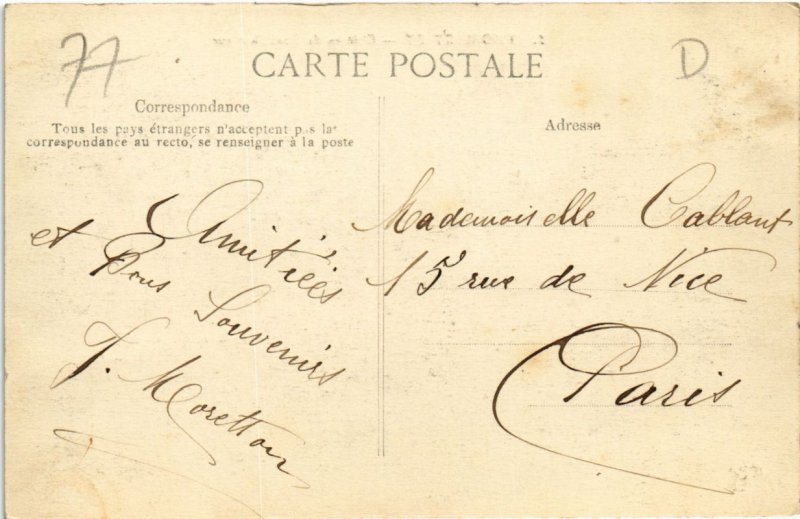 77
D
CARTE POSTALE
Correspondance
Tous les pays étrangers n'acceptent pas la
correspondance au recto, se renseigner à la poste
Amitiés
et Bons Souvenirs
J. Moretton
Adresse
Mademoiselle Cablant
15 rue de Nice
Paris